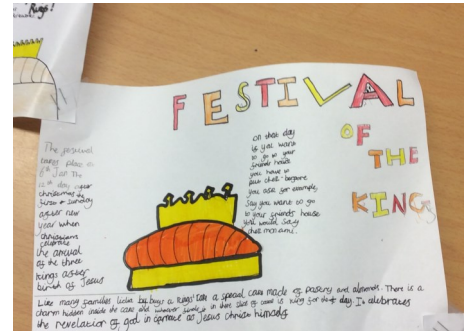 Rings!
FESTIVAL
OF
THE
KINGS
The festival
takes place on
6th Jan the
12th day after
christmas the
first sunday
after new
year when
christians
celebrate
the arrival
of the three
kings after
birth of Jesus
on that day
if you want
to go to your
friends house
you have to
put chez before
you ask for example,
Say you want to go
to your friends house
you would say
chez mon ami.
Like many families
buy a Kings' Cake a special cake made of pastry and almonds. There is a
charm hidden inside the cake and whoever finds it in there slice of cake is king for the day. It celebrates
the revelation of god in as Jesus christ himself